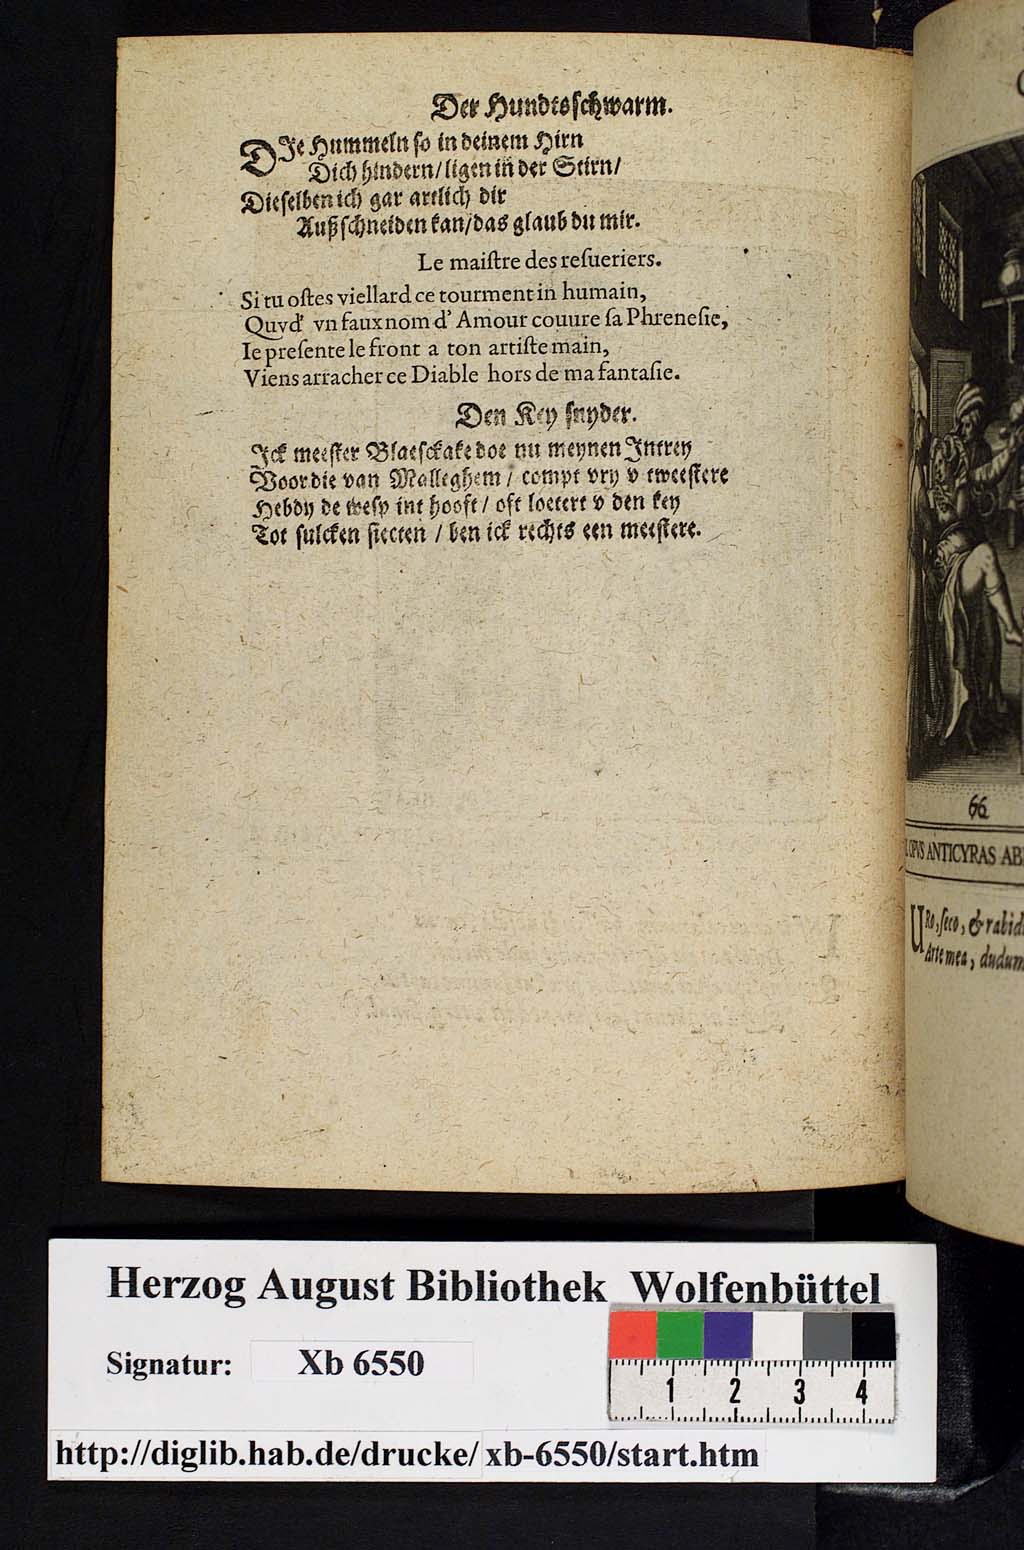 Der Hundtsschwarm.
DJe Hummeln so in deinem Hirn
Dich hindern/ ligen in der Stirn/
Dieselben ich gar artlich dir
Außschneiden kan/ das glaub du mir.
Le maiſtre des reſueriers.
Si tu oſtes viellard ce tourment in humain,
Quvd' vn faux nom d' Amour couure ſa Phreneſie,
Ie preſente le front a ton artiſte main,
Viens arracher ce Diable hors de ma fantaſie.
Den Key snyder.
Jck meester Blaesckake doe nu meynen Jntrey
Voor die van Malleghem / compt vry v tweestere
Hebdy de wesp int hooft / oft loetert v den key
Tot sulcken siecten / ben ick rechts een meestere.
66
OPVS ANTICYRAS AB
URo, ſeco, & rabid
Arte mea, dudum
Herzog August Bibliothek Wolfenbüttel
Signatur: Xb 6550
1 2 3 4
http://diglib.hab.de/drucke/ xb-6550/start.htm